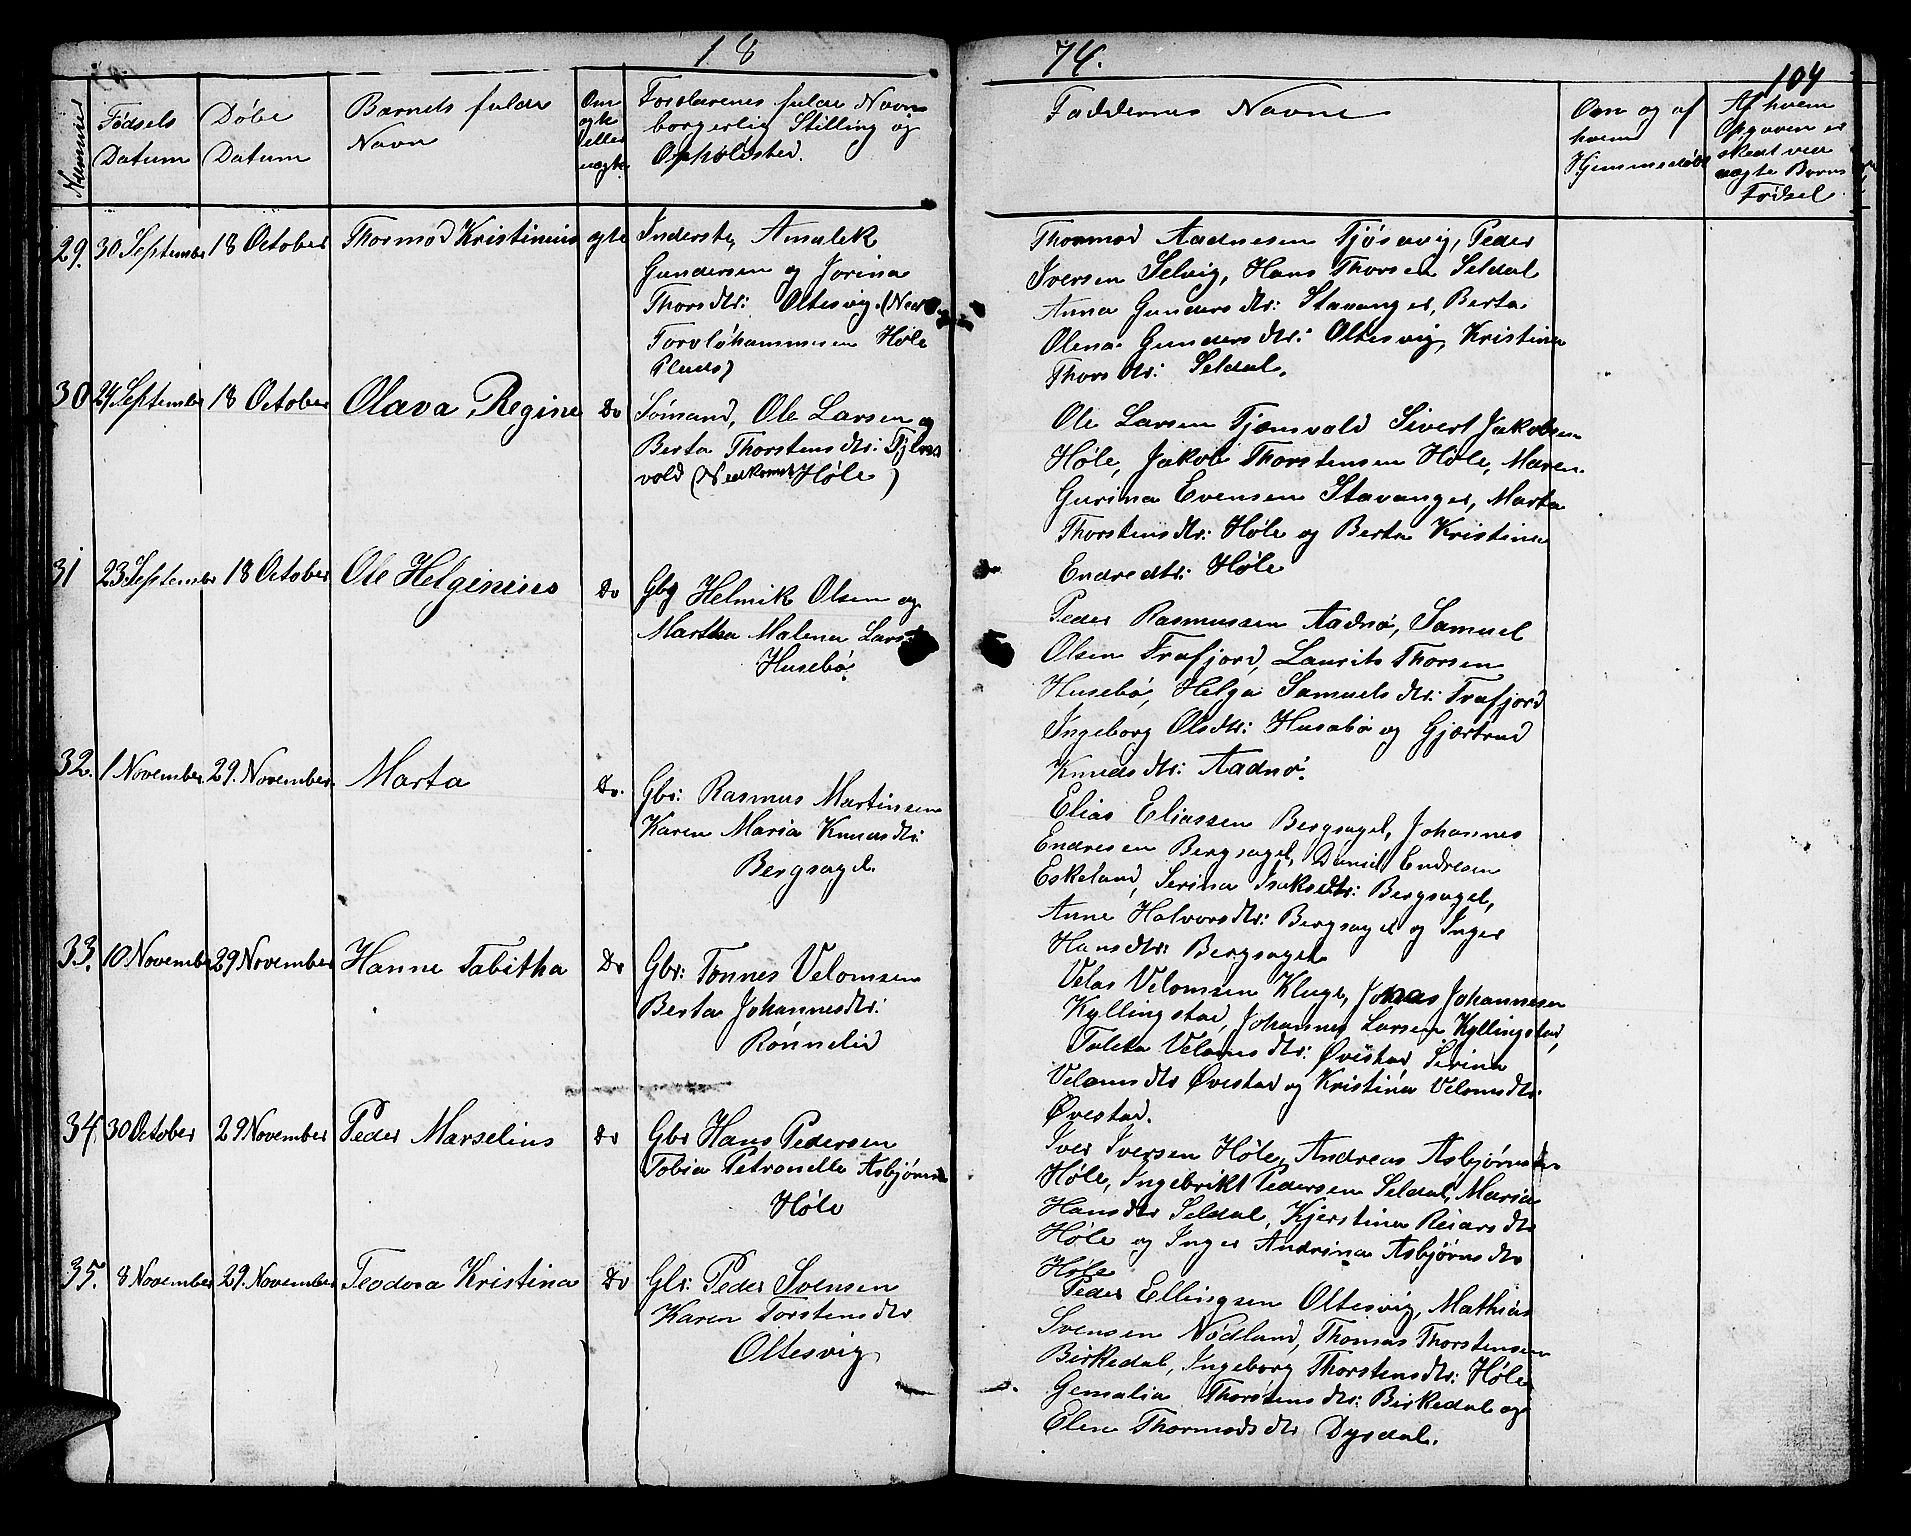 18
74.
104
Nummer
Fødsels
Datum
Døbe
Datum
Barnets fulde
Navn
Om
ægte
eller
uægte
Forældrenes fulde Navn
borgerlig Stilling og
Opholdsted.
Faddernes Navne
Om og af
hvem
Hjemmedøbt
Af hvem
Opgaven er
skedt ved
uægte Børns
Fødsel
29. 30 September 18 October Thormod Kristinius ægte
Inderste, Amalek
Gundersen og Jorina
Thorsdtr: Oltesvig. (Ned
Høle
Plads)
Thormod Aadnesen Tjøsavig, Peder
Iversen Selvig, Hans Thorsen Seldal
Anna Gundersdtr: Stavanger, Berta
Olena Gundersdtr: Oltesvig, Kristina
Thorsdtr: Seldal.
30 24 September 18 October Olava Regine Do
Sømand, Ole Larsen og
Berta Thorstensdtr: Tjens
vold (Nedkomst Høle)
Ole Larsen Tjænsvold Sivert Jakobsen
Høle, Jakob Thorstensen Høle, Maren
Gurina Evensen Stavanger, Marta
Thorstensdtr: Høle og Berta Kristina
Endredtr: Høle
31 23 September 18 October Ole Helginius Do
Gbr Helmik Olsen og
Martha Malena Lars
Husebø.
Peder Rasmussen Aadnø, Samuel
Olsen Frafjord, Laurits Thorsen
Husebø, Helga Samuelsdtr: Frafjord
Ingeborg Olsdtr: Husabø og Gjærtrud
Knudsdtr: Aadnø.
32. 1 November 29. November Marta Do.
Gbr: Rasmus Martinsen
Karen Maria Knudsdtr:
Bergsagel.
Elias Eliassen Bergsagel, Johannes
Endresen Bergsagel, Daniel Endresen
Eskeland, Serina Isaksdtr: Bergsagel,
Anne Halvorsdtr: Bergsagel og Inger
Hansdtr: Bergsagel
33. 10 November 29 November Hanne Tabitha Do
Gbr: Tønnes Velomsen
Berta Johannesdtr:
Rønnelid
Velas Velomsen Kluge, Jonas Johannesen
Kyllingstad, Johannes Larsen Kyllingstad,
Taleta Velomsdtr: Øvestad, Serina
Velomsdtr Øvestad og Kristina Velomsdtr:
Øvestad.
34. 30 October 29 November Peder Marselius Do
Gbr Hans Pedersen
Tobia Petronelle Asbjørnsd
Høle
Iver Iversen Høle, Andreas Asbjørnsen
Høle, Ingebrikt Pedersen Seldal, Maria
Hansdtr Seldal, Kjerstina Reiarsdtr
Høle og Inger Andrina Asbjørnsdtr
Høle
35. 8 November 29. November Teodora Kristina Do
Gbr: Peder Svensen
Karen Torstensdtr
Oltesvig
Peder Ellingsen Oltesvig, Mathias
Svensen Nødland, Thomas Thorstensen
Birkedal, Ingeborg Thorstensdtr: Høle
Gemalia Thorstensdtr: Birkedal og
Elen Thormodsdtr Dysdal.